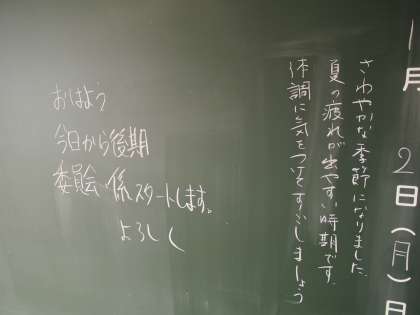 月 2日(月)日
さわやかな季節になりました
夏の疲れが出やすい時期です。
体調に気をつけてすごしましょう
おはよう
今日から後期
委員会・係スタートします。
よろしく